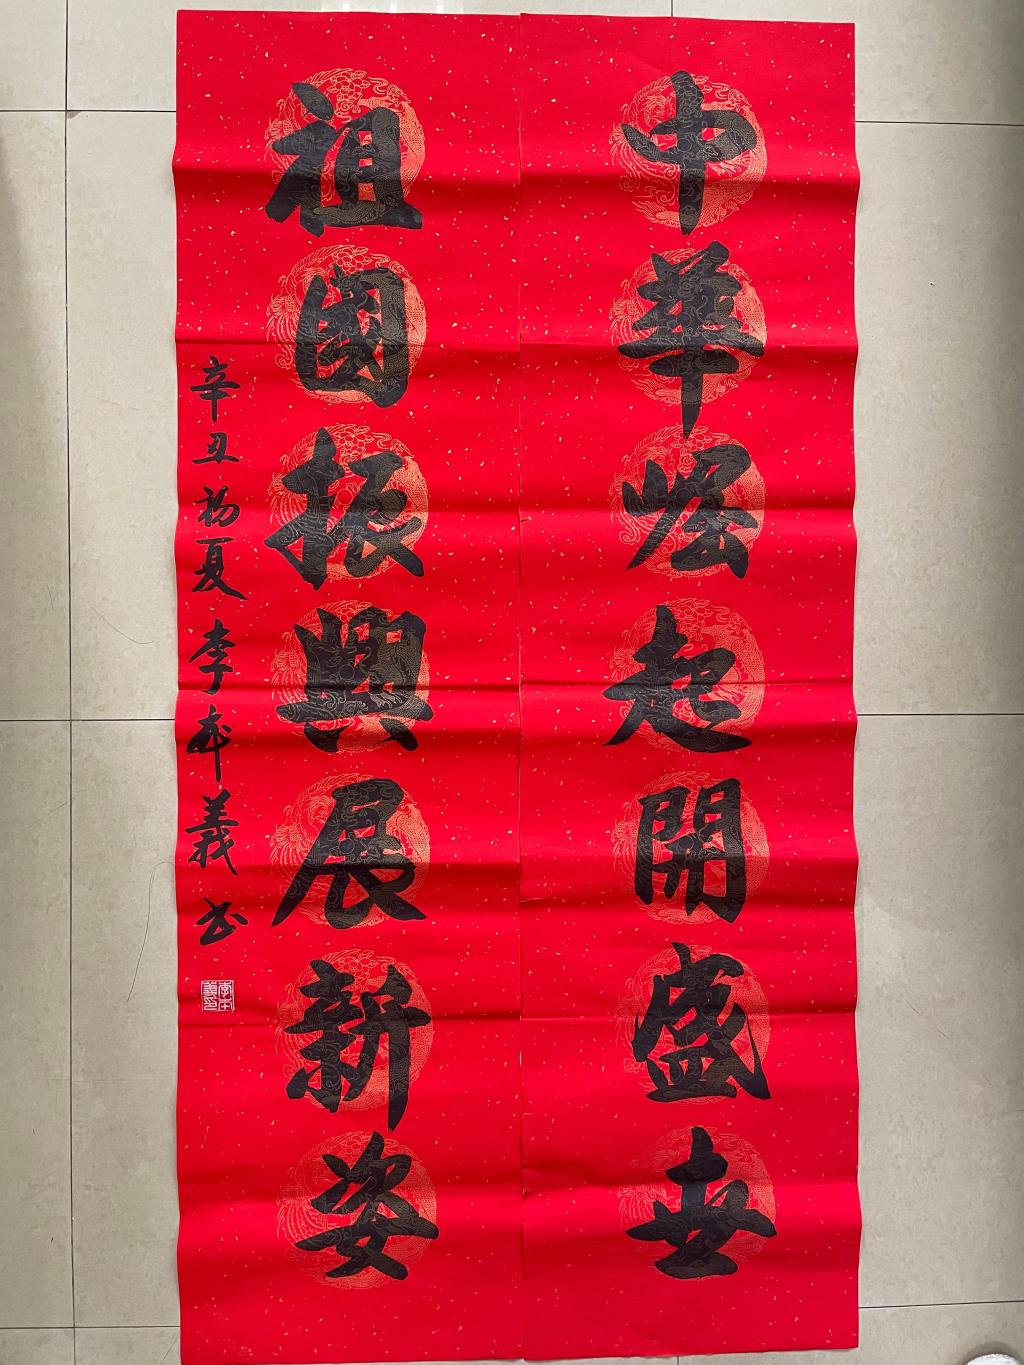 中華崛起開盛世
祖國振興展新姿
辛丑初夏李本義书
李本義印